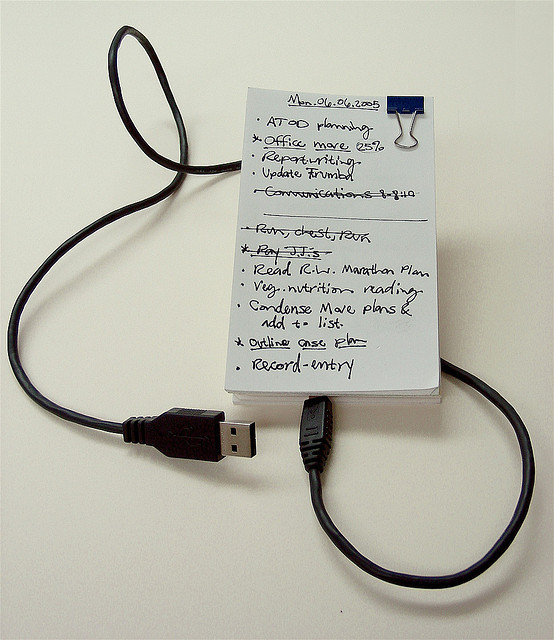 Mon. 06.06.2005
· ATOD planning
* Office move 25%
· Report writing
· Update Trumba
· Communications 8-8:40
· Run, chest, Run
* Pay J.J.'s
· Read R.W. Marathon Plan
· Veg. nutrition reading
· Condense Move plans &
add to list.
* Outline case plan
· Record-entry